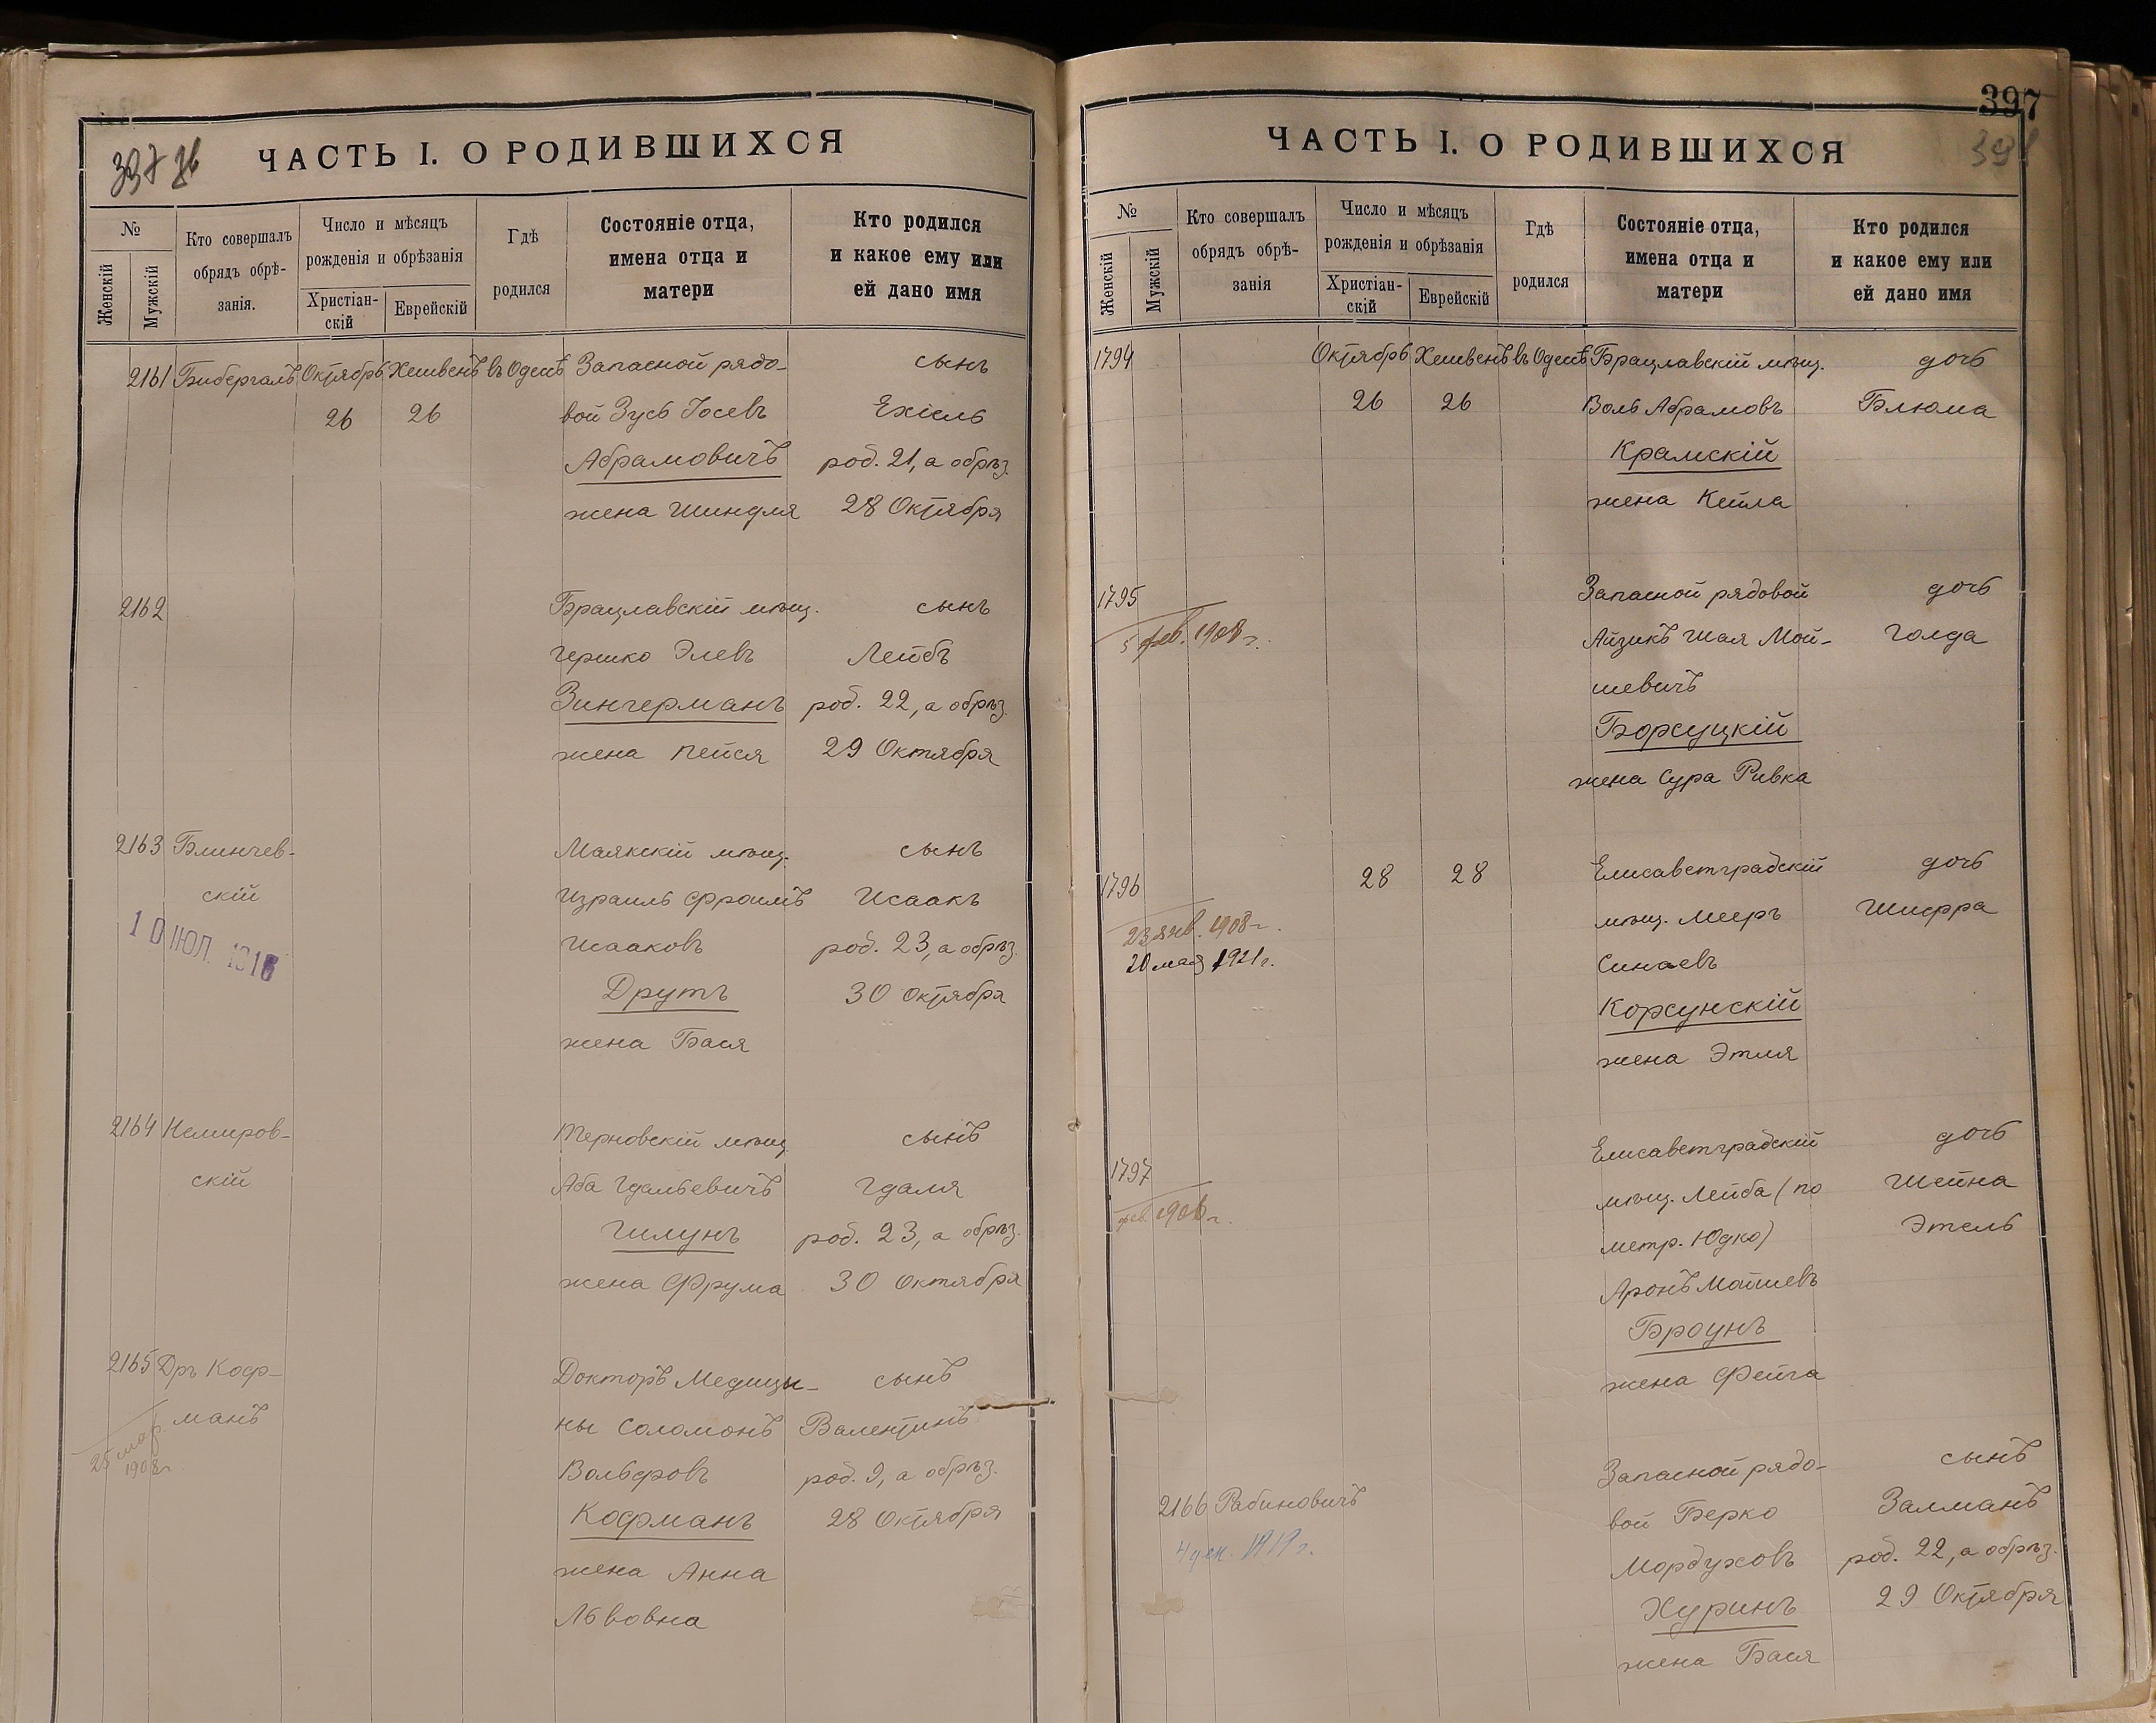 397
ЧАСТЬ I. О РОДИВШИХСЯ
№
Женскій
Мужскій
Кто совершалъ
обрядъ обрѣ-
занія.
Число и мѣсяцъ
рожденія и обрѣзанія
Христіан-
скій
Еврейскій
Гдѣ
родился
Состояніе отца,
имена отца и
матери
Кто родился
и какое ему или
ей дано имя
2161 Бибергалъ Октябрь Хешвенъ въ Одессѣ Запасной рядо- сынъ
26 26 вой Зусь Іосевъ Ехіель
Абрамовичъ род. 21, а обрѣз.
жена Шиндля 28 Октября
2162 Брацлавскій мѣщ. сынъ
Гершко Элевъ Лейбъ
Зингерманъ род. 22, а обрѣз.
жена Пейся 29 Октября
2163 Блинчев- Маякскій мѣщ. сынъ
скій Израиль Фроимъ Исаакъ
10 ІЮЛ. 1916
Исааковъ род. 23, а обрѣз.
Друтъ 30 Октября
жена Бася
2164 Немиров- Терновскій мѣщ. сынъ
скій Аба Гдальевичъ Гдаля
Гилунъ род. 23, а обрѣз.
жена Фрума 30 Октября
2165 Дръ Коф- Докторъ Медицы- сынъ
манъ ны Соломонъ Валентинъ
25 мар.
1908 г.
Вольфовъ род. 9, а обрѣз.
Кофманъ 28 Октября
жена Анна
Львовна
397
ЧАСТЬ I. О РОДИВШИХСЯ
№
Женскій
Мужскій
Кто совершалъ
обрядъ обрѣ-
занія
Число и мѣсяцъ
рожденія и обрѣзанія
Христіан-
скій
Еврейскій
Гдѣ
родился
Состояніе отца,
имена отца и
матери
Кто родился
и какое ему или
ей дано имя
1794 Октябрь Хешвенъ въ Одессѣ Брацлавскій мѣщ. дочь
26 26 Воль Абрамовъ Блюма
Крамскій
жена Кейла
1795 Запасной рядовой дочь
5 фев. 1908 г. Айзикъ Шая Мой- Голда
шевичъ
Борсуцкій
жена Сура Ривка
1796 28 28 Елисаветградскій дочь
23 янв. 1908 г. мѣщ. Мееръ Шифра
20 мая 1921 г. Синаевъ
Корсунскій
жена Этля
1797 Елисаветградскій дочь
фев. 1906 г. мѣщ. Лейба (по Шейна
метр. Юдко) Этель
Аронъ Мошіевъ
Броунъ
жена Фейга
Запасной рядо- сынъ
2166 Рабиновичъ вой Берко Залманъ
4 дек. 1919 г. Мордуховъ род. 22, а обрѣз.
Хуринъ 29 Октября
жена Бася